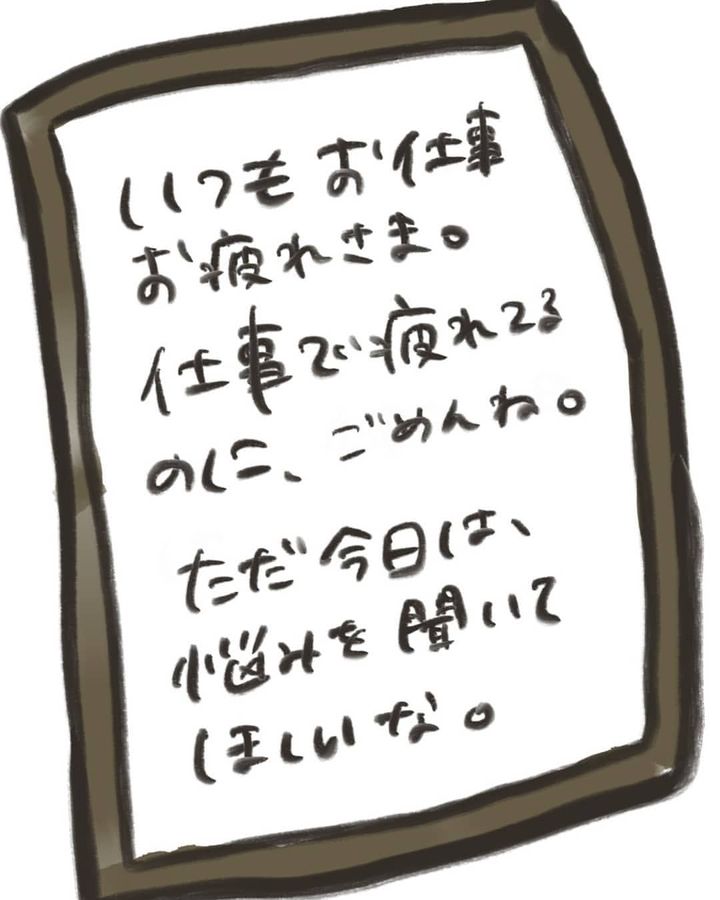 いつもお仕事
お疲れさま。
仕事で疲れてる
のに、ごめんね。
ただ今日は、
悩みを聞いて
ほしいな。